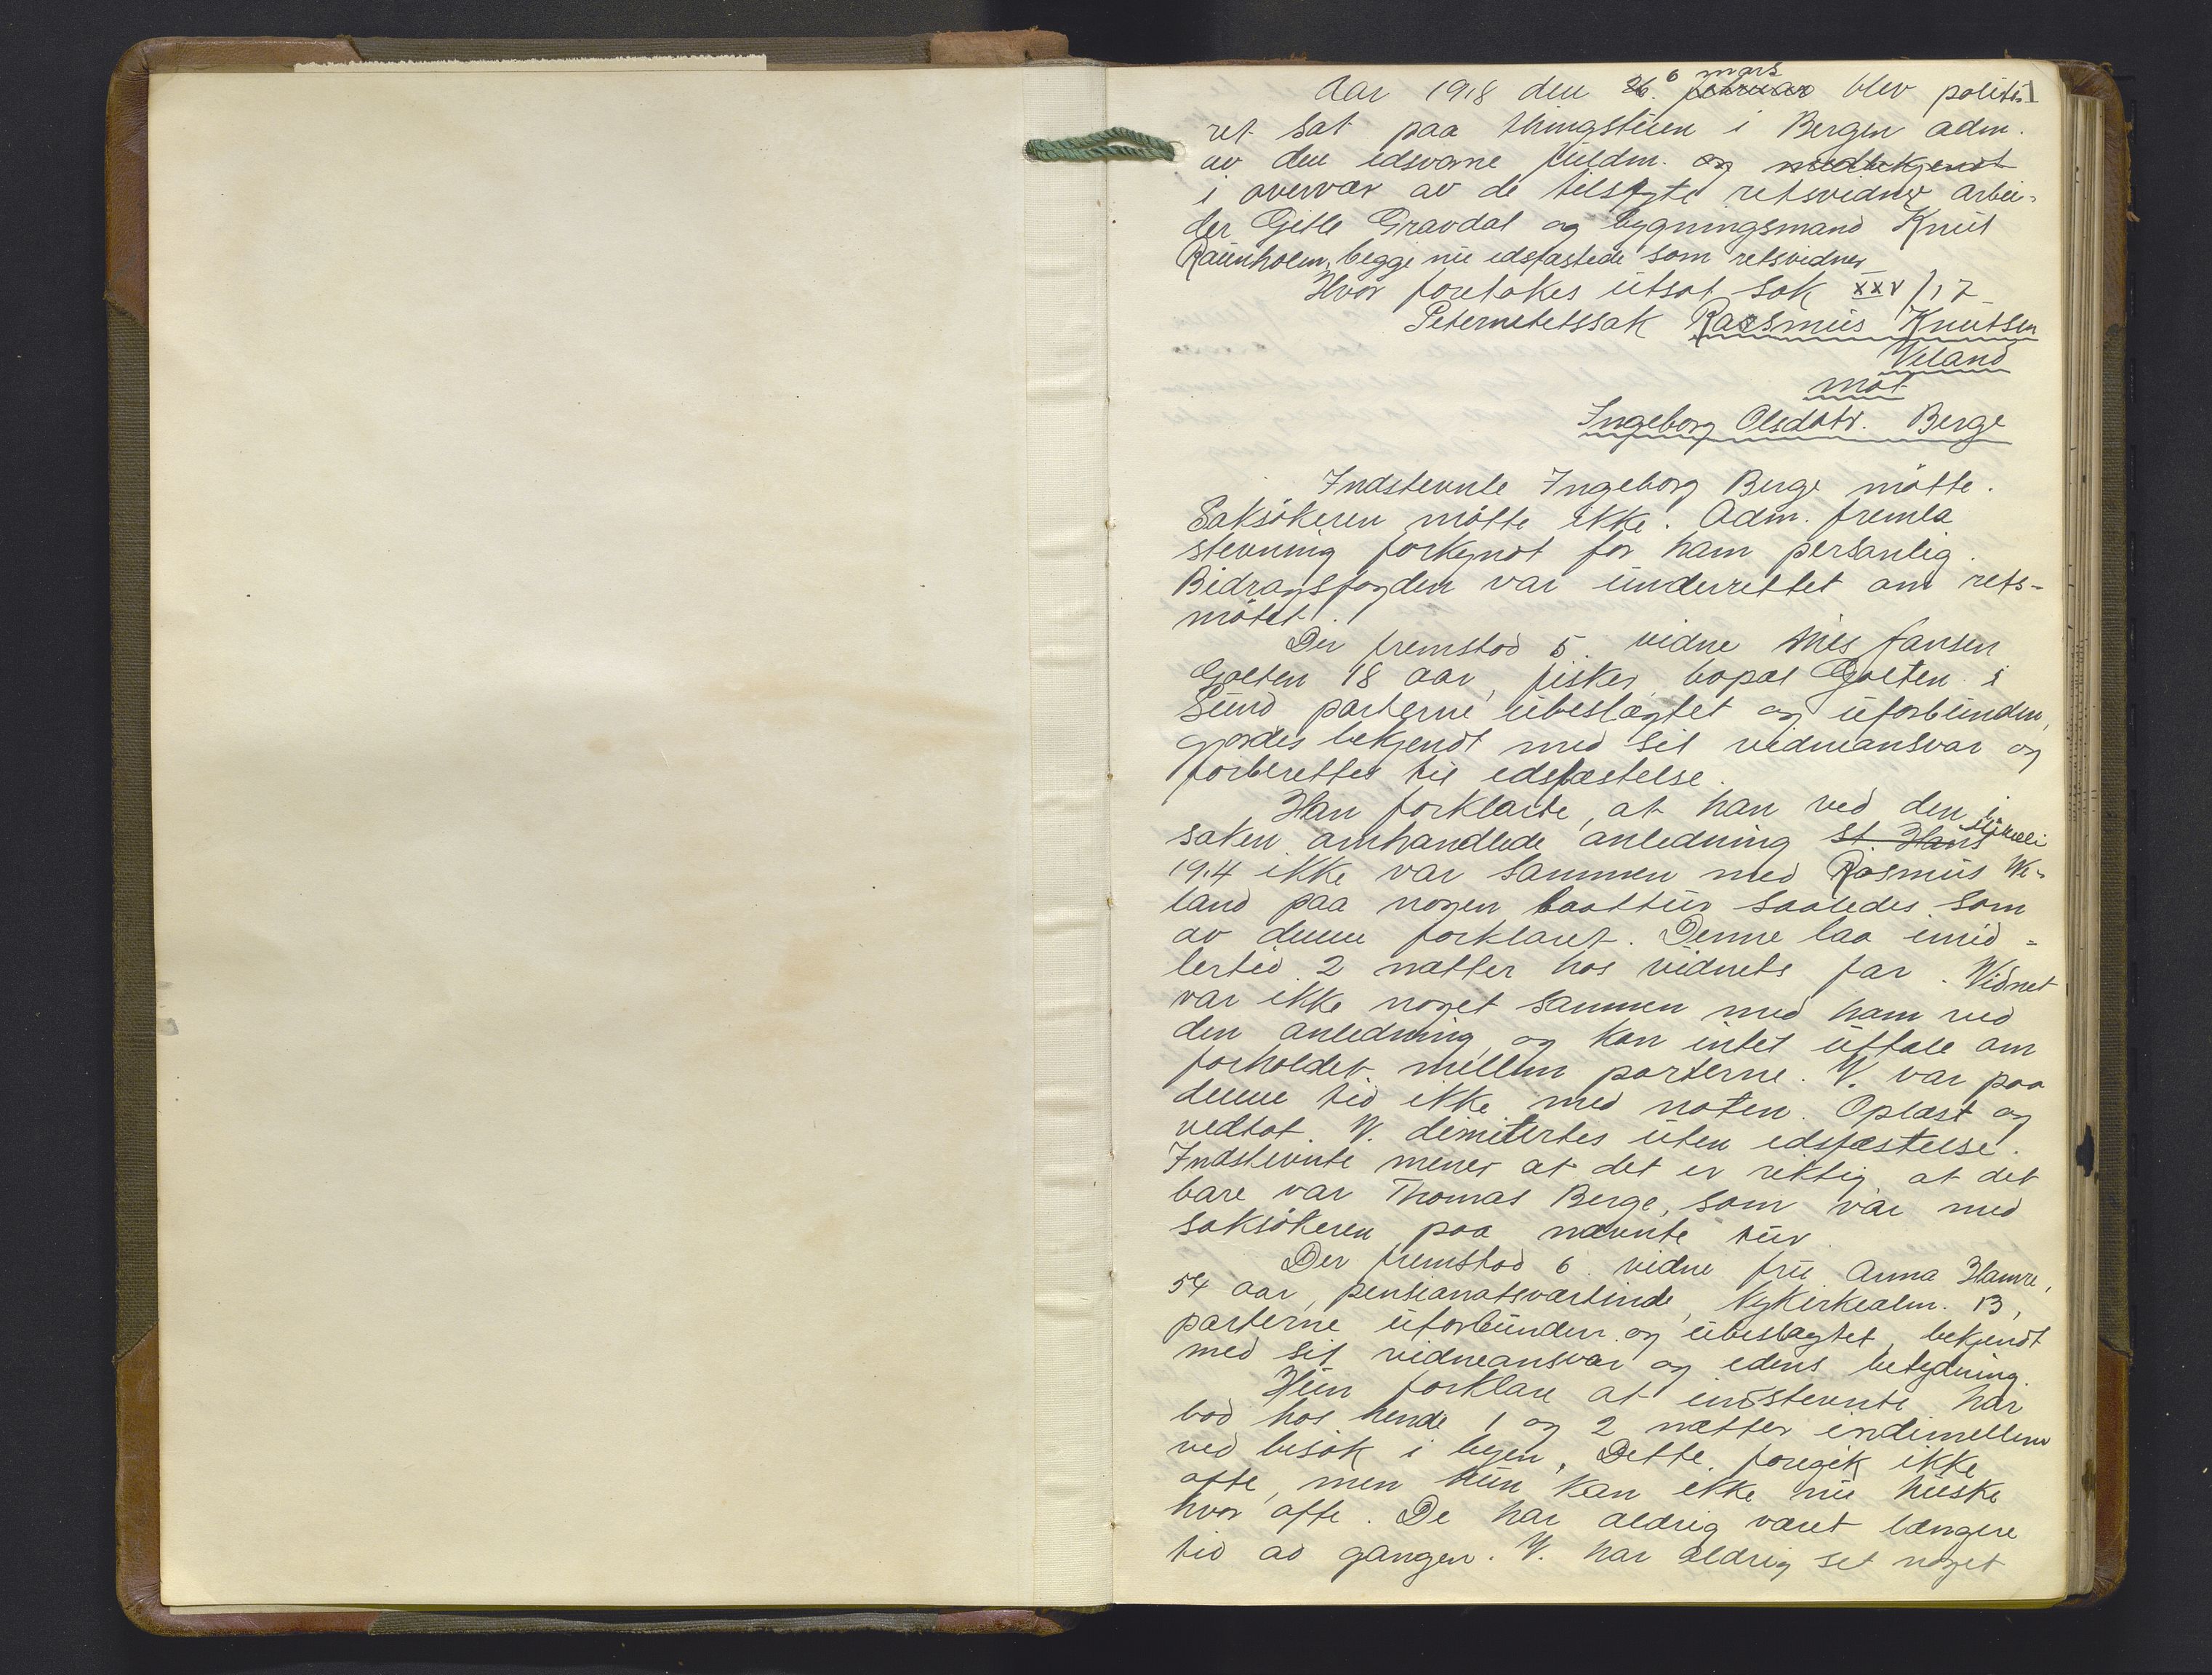 Aar 1918 den 26. 6 februar mars blev politi- 1
ret sat paa thingstuen i Bergen adm.
av den edsvorne fuldm. og medbekjendt
i overvær av de tilsagte retsvidner arbei-
der Gitle Gravdal og bygningsmand Knut
Raunholm, begge nu edsfæstede som retsvidner
Hvor foretokes utsat sak XXV/17
Paternitetssak Rasmus Knutsen
Veland
mot
Ingeborg Olsdatr. Berge
Indstevnte Ingeborg Berge møtte.
Saksøkeren møtte ikke. Adm. fremla
stevning forkyndt for ham personlig.
Bidragsfogden var underrettet om rets-
møtet.
Der fremstod 5. vidne Nils Jansen
Golten 18 aar, fisker, bopæl Golten i
Sund, parterne ubeslægtet og uforbunden,
gjordes bekjendt med sit vidneansvar og
forberettes til edsfæstelse.
Han forklarte, at han ved den i
saken omhandlede anledning St. Hans
1914 ikke var sammen med Rasmus Ve-
land paa nogen baattur saaledes som
av denne forklaret. Denne laa imid-
lertid 2 nætter hos vidnets far. Vidnet
var ikke noget sammen med ham ved
den anledning og kan intet uttale om
forholdet mellem parterne. V. var paa
denne tid ikke med noten. Oplæst og
vedtat. V. dimitertes uten edsfæstelse.
Indstevnte mener at det er riktig, at det
bare var Thomas Berge, som var med
saksøkeren paa nævnte tur.
Der fremstod 6. vidne fru Anna Hamre,
54 aar, pensionatsværtinde, Nykirkealm. 13,
parterne uforbunden og ubeslægtet, bekjendt
med sit vidneansvar og edens betydning.
Hun forklare at indstevnte har
bod hos hende 1 og 2 nætter indimellem
ved besøk i byen. Dette foregik ikke
ofte, men hun kan ikke nu huske
hvor ofte. De har aldrig været længere
tid ad gangen. V. har aldrig set noget